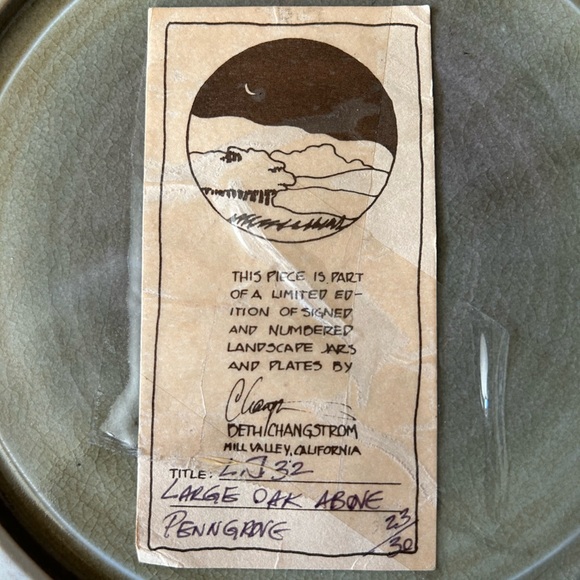 THIS PIECE IS PART
OF A LIMITED ED-
ITION OF SIGNED
AND NUMBERED
LANDSCAPE JARS
AND PLATES BY
BETH CHANGSTROM
MILL VALLEY, CALIFORNIA
TITLE: 32
LARGE OAK ABOVE
PENNGROVE
23/30